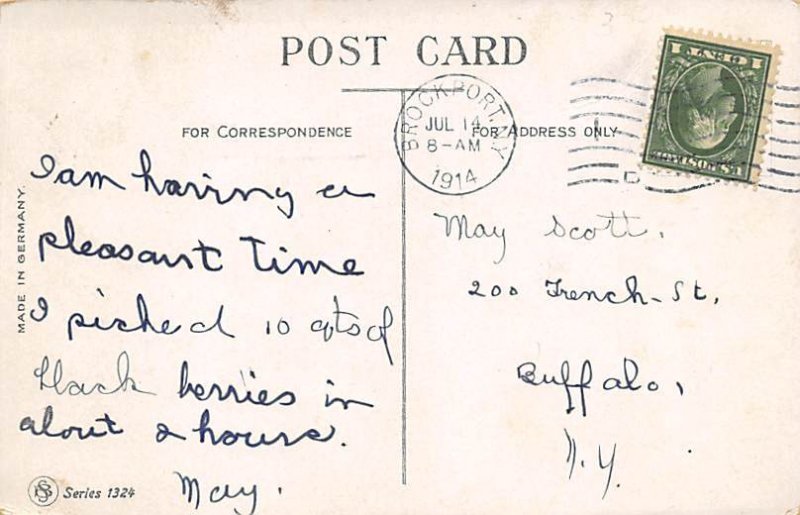 POST CARD
FOR CORRESPONDENCE
FOR ADDRESS ONLY
BROCKPORT, N.Y.
JUL 14
8-AM
1914
I am having a
pleasant time
I picked 10 qts of
black berries in
about 2 hours.
May.
May Scott.
200 French-St,
Buffalo,
N.Y.
MADE IN GERMANY.
Series 1324